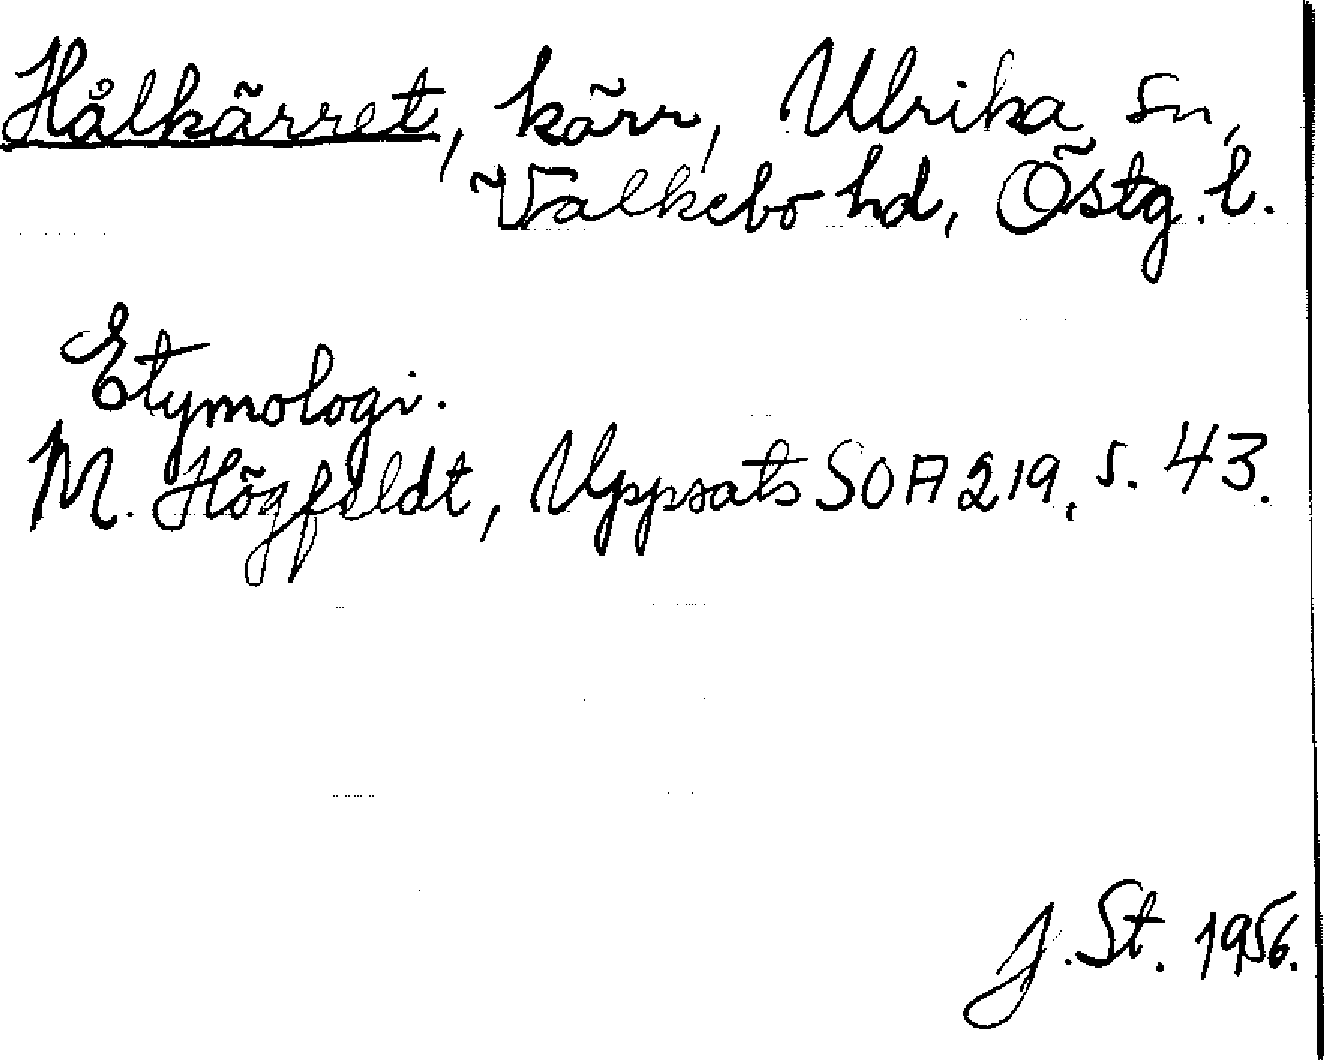 Hålkärret, kärr, Ulrika sn,
Valkebo hd, Östg. l.
Etymologi.
M. Högfeldt, Uppsats SOA 219, s. 43.
J. St. 1956.